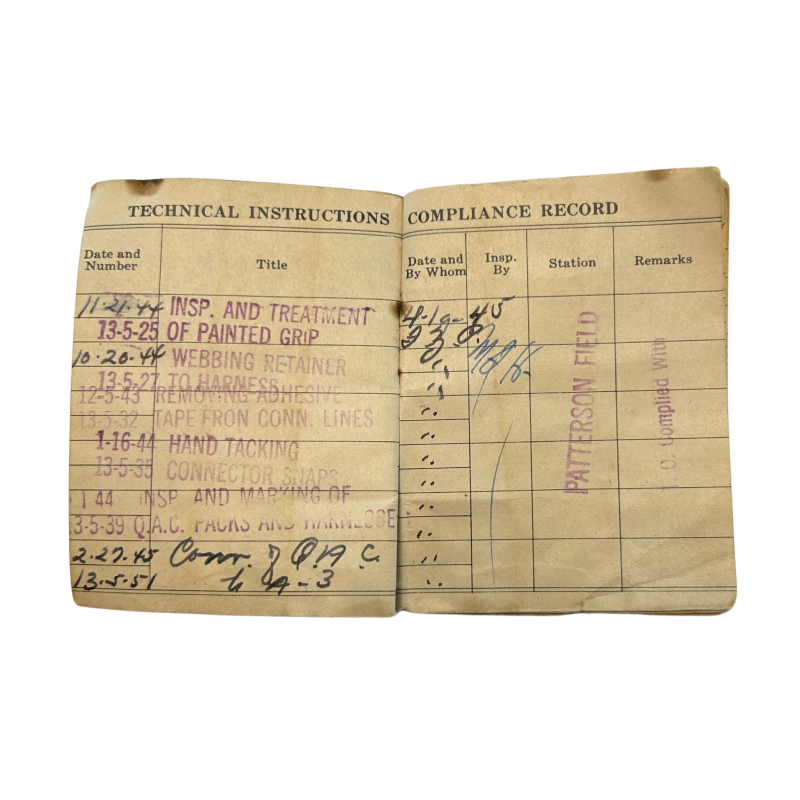 TECHNICAL INSTRUCTIONS COMPLIANCE RECORD
Date and Number
Title
11-21-44 INSP. AND TREATMENT
13-5-25 OF PAINTED GRIP
10-20-44 WEBBING RETAINER
13-5-27 TO HARNESS
12-5-43 REMOVING ADHESIVE
13-5-32 TAPE FROM CONN. LINES
1-16-44 HAND TACKING
13-5-35 CONNECTOR SNAPS
1 44 INSP AND MARKING OF
13-5-39 Q.A.C. PACKS AND HARNESSE
2-27-45 Conv. of Q.A.C.
13-5-51 to A-3
Date and By Whom
Insp. By
Station
Remarks
4-10-45
PATTERSON FIELD
T.O. Complied With